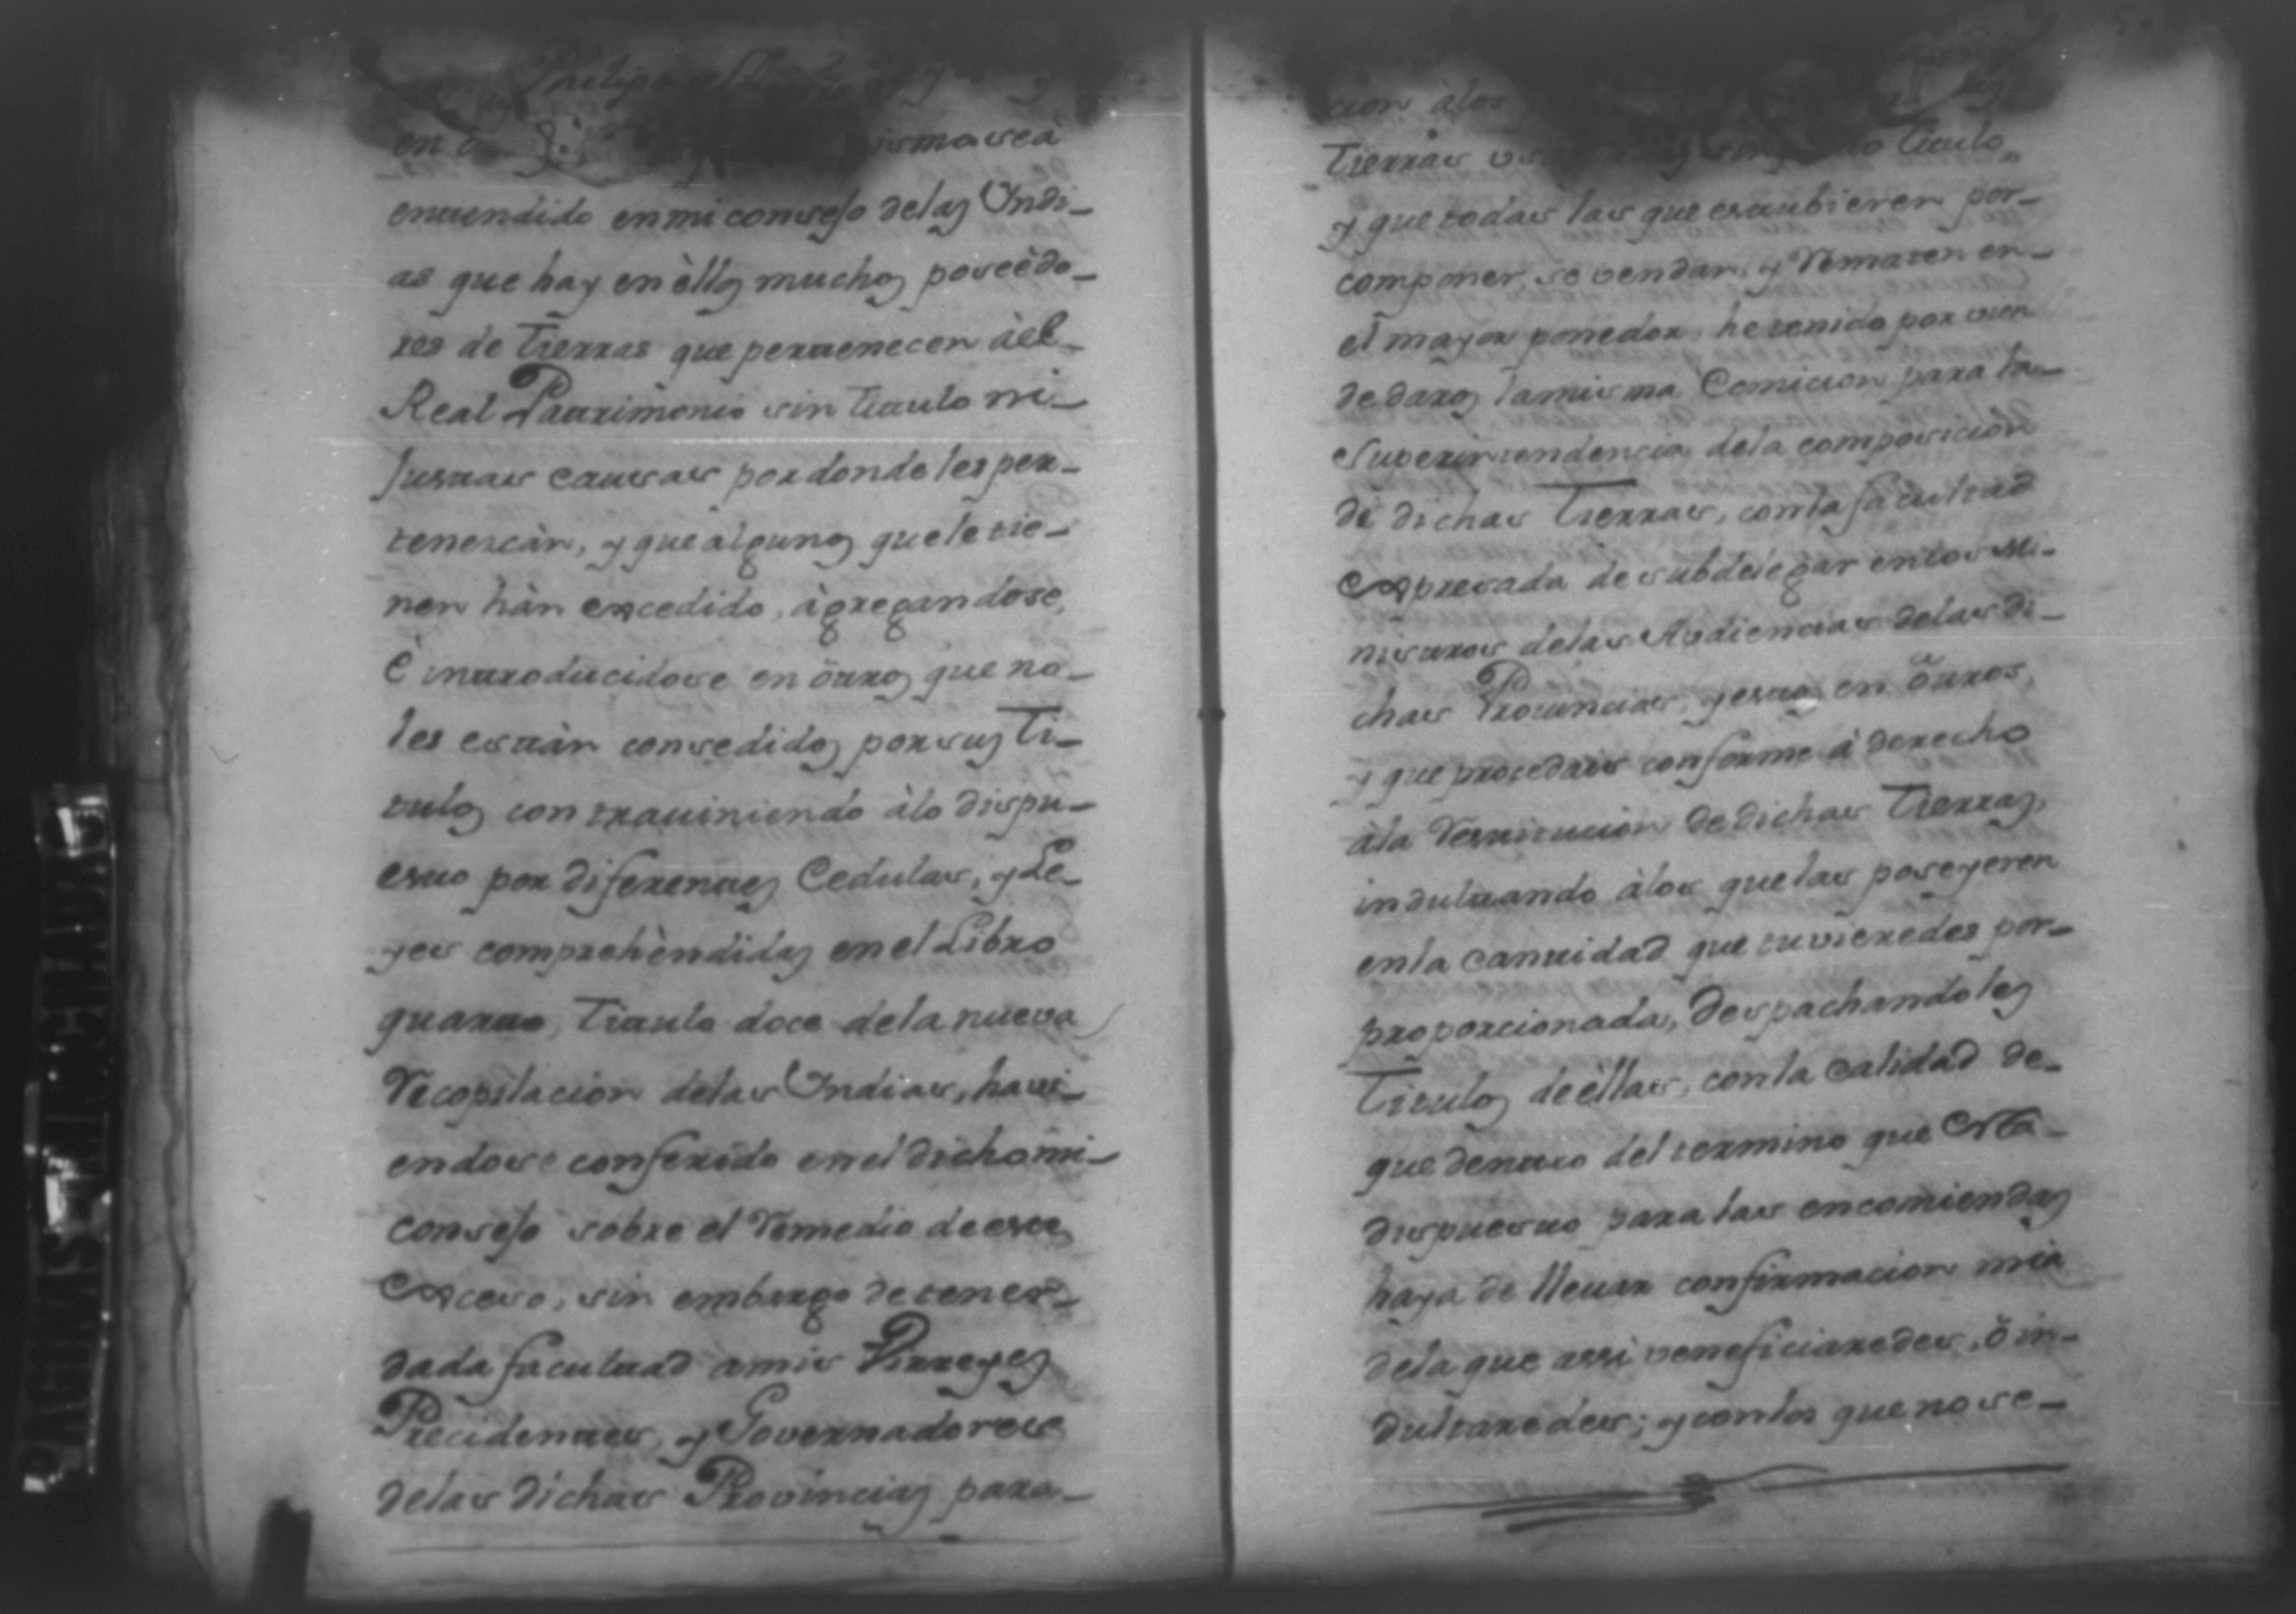 Phelipe
en
entendido en mi consejo de las Yndi-
as que hay en èllas muchos poseèdo-
res de Tierras que pertenecen àel-
Real Patrimonio sin titulo ni-
justas causas por donde les per-
tenescàn, y que algunos que le tie-
nen hàn excedido, àgregandose,
è introducidose en òtros que no-
les estàn consedidos por sus Ti-
tulos contraviniendo àlo dispu-
esto por diferentes Cedulas, y Le-
yes comprehèndidas en el Libro
quarto, Titulo doce de la nueva
Recopilacion de las Yndias, havi-
endose conferido en el dicho mi-
consejo sobre el Remedio de este
Exceso, sin embargo de tener-
dada facultad a mis Virreyes
Precidentes, y Governadores
de las dichas Provincias para-
cion àlos
Tierras titulo
y que todas las que estubieren por-
componer, se vendan, y Rematen en-
el mayor ponedor, he tenido por vien
de daros la misma Comicion para la-
Superintendencia de la composicion
de dichas Tierras, con la facultad
Expresada de subdelegar en los Mi-
nistros de las Audiencias de las di-
chas Provincias, y estos en òtros,
y que procedais conforme à derecho
àla Restitucion de dichas Tierras,
indultando àlos que las poseyeren
en la cantidad que tuvieredes por-
proporcionada, Despachandoles
Titulos de èllas, con la calidad de-
que dentro del termino que Esta-
dispuesto para las encomiendas
haya de llevar confirmacion mia
de la que assi veneficiaredes, ò in-
dultaredes; y con los que no se-